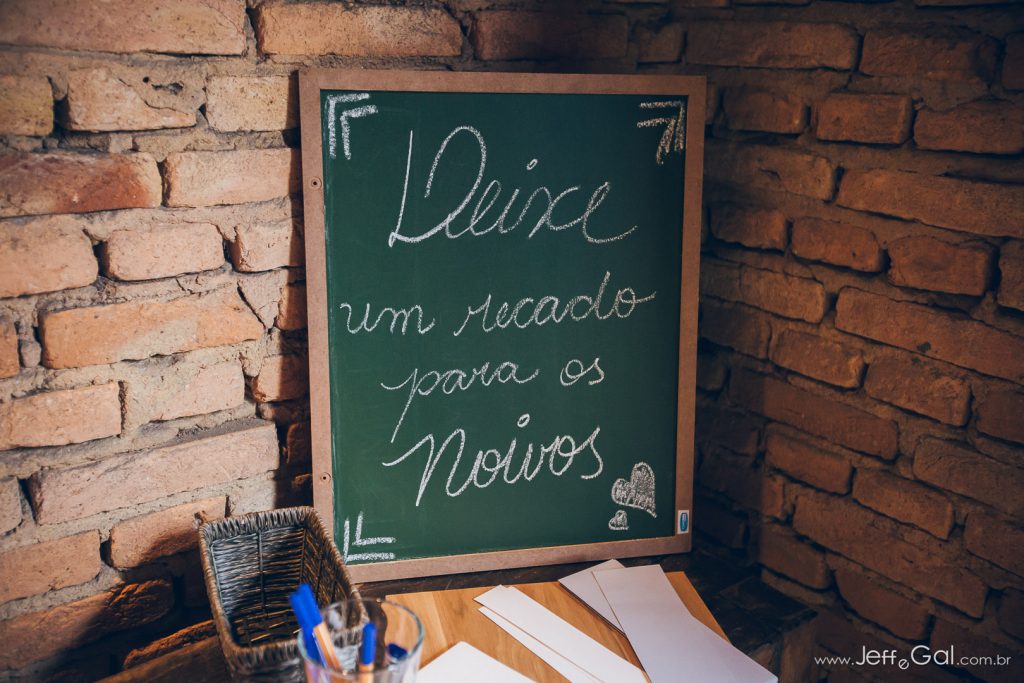 Deixe
um recado
para os
Noivos
www.JeffeGal.com.br